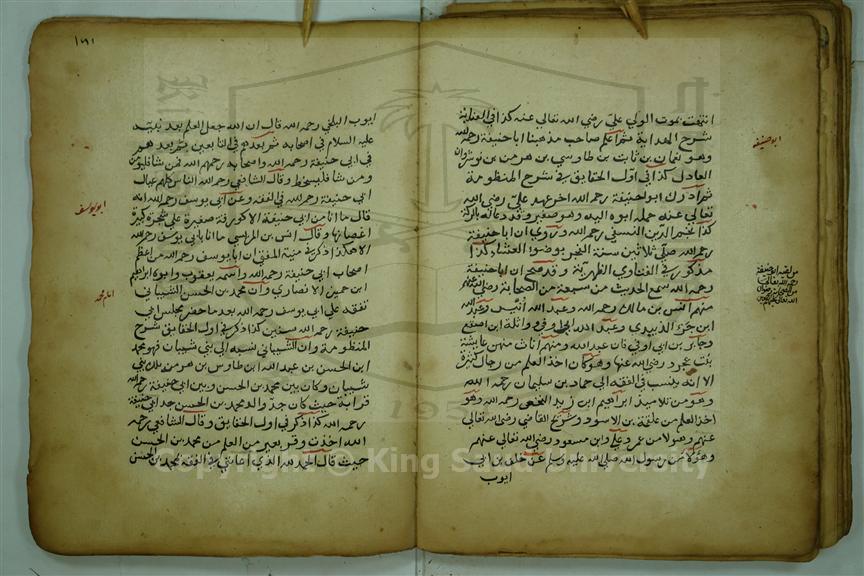 انتهت بموت الولي علي رضي الله تعالى عنه كذا في العناية
شرح الهداية ثم اعلم صاحب مذهبنا ابا حنيفة رحمه الله
وهو نعمان بن ثابت بن طاوسي بن هرمز بن نوشروان
العادل كذا في اول الحقايق في شرح المنظومة
ثم ادرك ابو حنيفة رحمه الله اخر عهد علي رضي الله
تعالى عنه حمله ابوه اليه وهو صغير وقد دعا له بالبركة
كذا نجم الدين النسفي رحمه الله وروي ان ابا حنيفة
رحمه الله صلى ثلاثين سنة الفجر بوضوء العشاء كذا
مذكور في الفتاوي الظهرية وقد صح ان ابا حنيفة
رحمه الله سمع الحديث من سبعة من الصحابة رضي الله عنهم
منهم انس بن مالك رحمه الله وعبد الله انيس وعبد الله
ابن جزء الزبيدي وعبد الله ابي اوفى وواثلة ابن اسقع
وجابر بن ابي اوفى قان عبد الله ومنهم اناث منهن عايشة
بنت عجرد رضي الله عنها وهو كان اخذ العلم من رجال كثيرة
الا انه ينسب في الفقه الى حماد بن سليمان رحمه الله
وهو من تلاميذ ابراهيم ابن زيد النخعي رحمه الله وهو
اخذ العلم من علقمة بن الاسود وشريح القاضي رضي الله تعالى
عنهم وهولا من عمر وعلي وابن مسعود رضي الله تعالى عنهم
وهولاء من رسول الله صلى الله عليه وسلم عن خلف بن ابي
ايوب
ابو حنيفه
رحمه الله تعالى
من الصحابة رضوان
الله تعالى عليهم اجمعين
١٩١
ايوب البلخي رحمه الله قال ان الله جعل العلم بعد نبيه
عليه السلام في اصحابه ثم بعدهم في التابعين ثم بعدهم
في ابي حنيفة رحمه الله واصحابه رحمهم الله فمن شاء فليؤمن
ومن شاء فليسخط وقال الشافعي رحمه الله الناس كلهم عيال
ابي حنيفة رحمه الله في الفقه وعن ابي يوسف رحمه الله انه
قال ما انا من ابي حنيفة الا كورقة صغيرة على شجرة كبيرة
اغصانها وقال انس بن المريسي ما انا بابي يوسف رحمه الله
الا هكذا ذكر في منية المفتي ان ابا يوسف رحمه الله من اعظم
اصحاب ابي حنيفة رحمه الله واسمه يعقوب وابوه ابراهيم
ابن حمين الانصاري وان محمد بن الحسن الشيباني
تفقه على ابي يوسف رحمه الله بعد ما حضر مجلس ابي
حنيفة رحمه الله سنين كذا ذكر في اول الحقايق شرح
المنظومة وان الشيباني نسبه الى بني شيبان فهو محمد
ابن الحسن بن عبد الله ابن طاوس بن هرمز ملك بني
شيبان وكان بين محمد بن الحسن وبين ابي حنيفة رحمه الله
قرابة حيث كان جد والد محمد بن الحسن جد ابي حنيفة
رحمه الله كذا ذكر في اول الحقايق وقال الشافعي رحمه
الله اخذت وقر بعير من العلم من محمد بن الحسن
حيث قال الحمد لله الذي اعانني في الفقه محمد بن الحسن
ابو يوسف
امام محمد
1957
Copyright © King Saud University